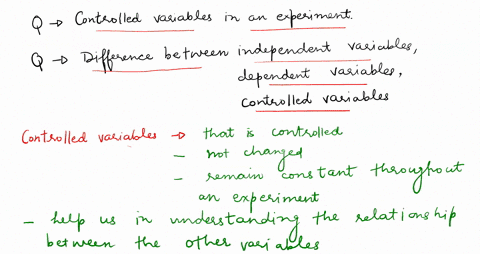 Q → Controlled variables in an experiment.
Q → Difference between independent variables,
dependent variables,
controlled variables
Controlled variables → that is controlled
- not changed
- remain constant throughout
an experiment
- help us in understanding the relationship
between the other variables